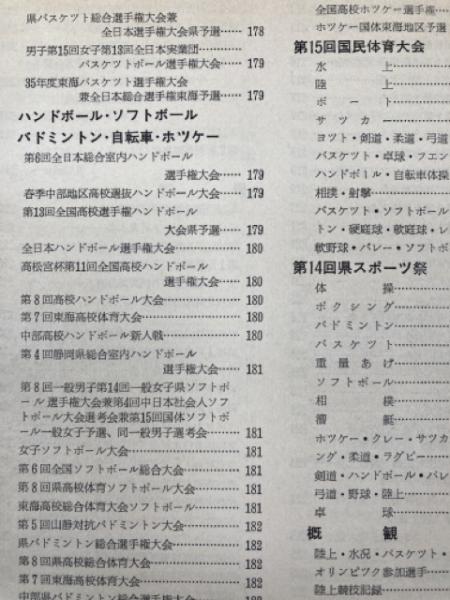 県バスケツト総合選手権大会兼
全日本選手権大会県予選…… 178
男子第15回女子第13回全日本実業団……
バスケツトボール選手権大会…… 179
35年度東海バスケツト選手権大会
兼全日本総合選手権東海予選…… 179
ハンドボール・ソフトボール
バドミントン・自転車・ホツケー
第6回全日本総合室内ハンドボール
選手権大会…… 179
春季中部地区高校選抜ハンドボール大会…… 179
第13回全国高校選手権ハンドボール
大会県予選…… 179
全日本ハンドボール選手権大会…… 180
高松宮杯第11回全国高校ハンドボール
選手権大会…… 180
第8回高校ハンドボール大会…… 180
第7回東海高校体育大会…… 180
中部高校ハンドボール新人戦…… 180
第4回静岡県総合室内ハンドボール
選手権大会…… 181
第8回一般男子第14回一般女子県ソフトボ
ール選手権大会兼第4回中日本社会人ソフ
トボール大会選考会兼第15回国体ソフトボ
ール一般女子予選、同一般男子選考会…… 181
女子ソフトボール大会…… 181
第6回全国ソフトボール総合大会…… 181
第8回県高校体育ソフトボール大会…… 181
東海高校総合体育ソフトボール大会…… 181
第5回山静対抗バドミントン大会…… 182
県バドミントン総合選手権大会…… 182
第8回県高校総合体育大会…… 182
第7回東海高校体育大会…… 182
中部県バドミントン総合選手権大会…… 182
全国高校ホツケー選手権…
ホツケー国体東海地区予選
第15回国民体育大会
水　　上…
陸　　上…
ボ ー ト…
サ ツ カ ー
ヨツト・剣道・柔道・弓道
バスケツト・卓球・フエン
ハンドボール・自転車体操
相撲・射撃…
バスケツト・ソフトボール
トン・硬庭球・軟庭球・レ
軟野球・バレー・ソフトボ
第14回県スポーツ祭
体　　操…
ボ ク シ ン グ…
バ ド ミ ン ト ン…
バ ス ケ ツ ト…
重 量 あ げ…
ソ フ ト ボ ー ル…
相　　撲…
ホツケー・クレー・サツカ
ング・柔道・ラグビー…
剣道・ハンドボール・バレ
弓道・野球・陸上…
卓　　球…
概　　観
陸上・水泳・バスケツト・
オリンピツク参加選手…
陸上競技記録…